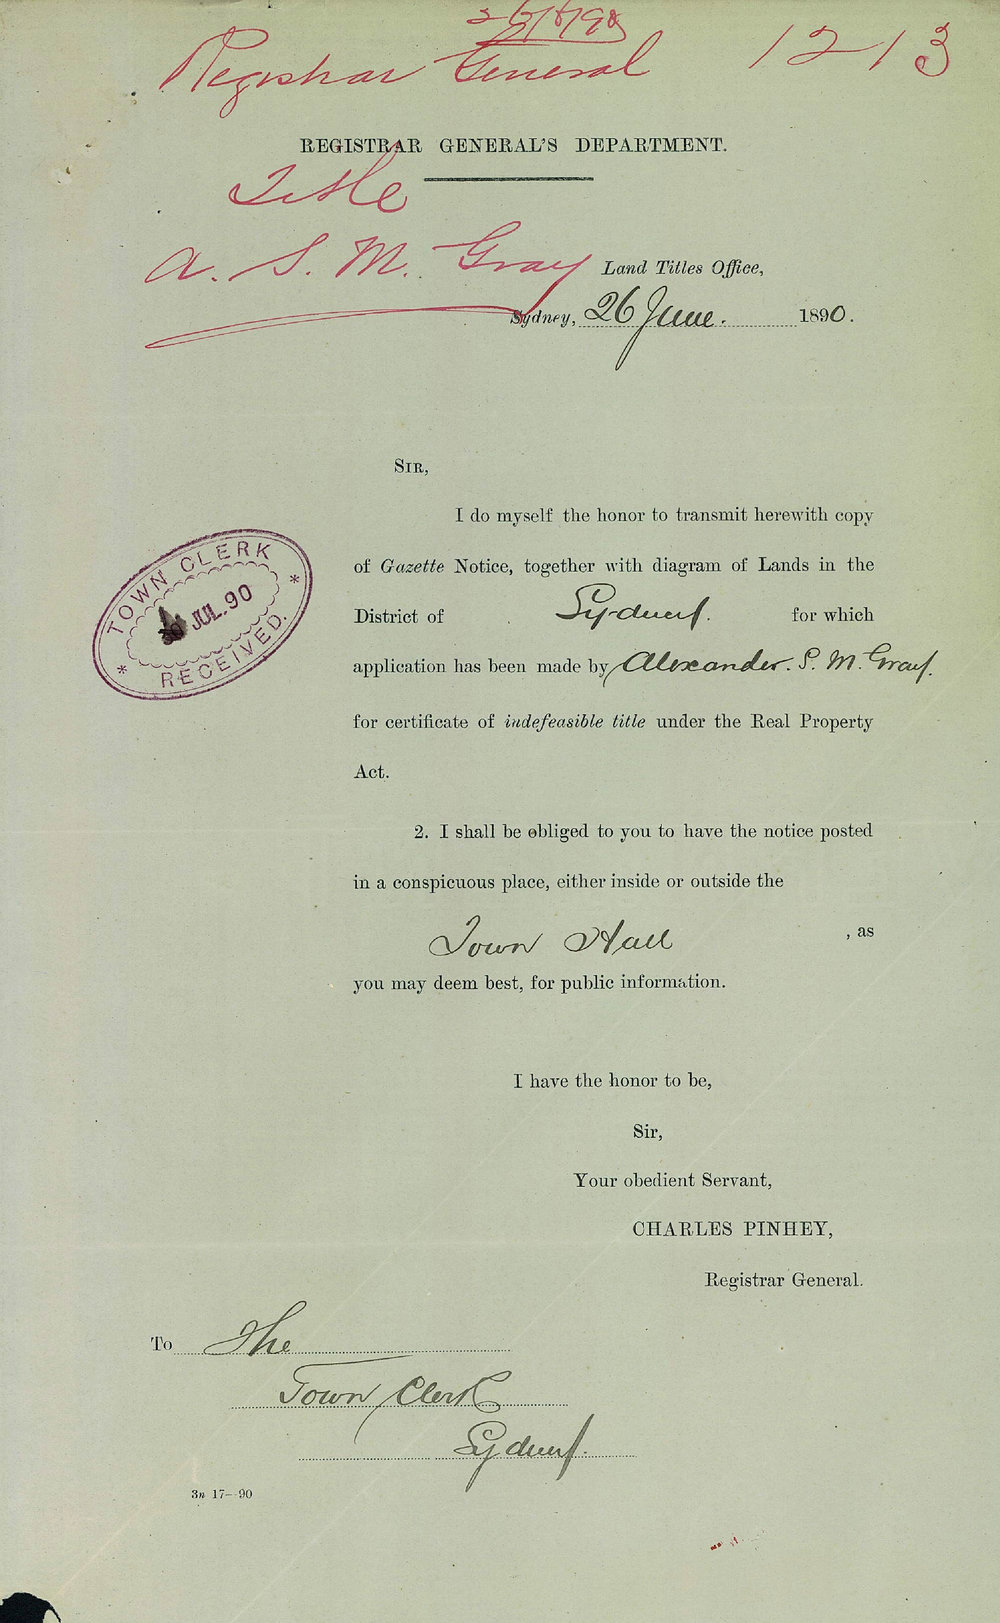 26/6/90
Registrar General 1213
REGISTRAR GENERAL'S DEPARTMENT.
Title
A. S. M. Gray
Land Titles Office,
Sydney, 26 June. 1890.
SIR,
I do myself the honor to transmit herewith copy
of Gazette Notice, together with diagram of Lands in the
District of Sydney. for which
application has been made by Alexander. S. M. Gray.
for certificate of indefeasible title under the Real Property
Act.
TOWN CLERK
JUL. 90
RECEIVED.
2. I shall be obliged to you to have the notice posted
in a conspicuous place, either inside or outside the
Town Hall , as
you may deem best, for public information.
I have the honor to be,
Sir,
Your obedient Servant,
CHARLES PINHEY,
Registrar General.
To The
Town Clerk
Sydney.
3n 17—90